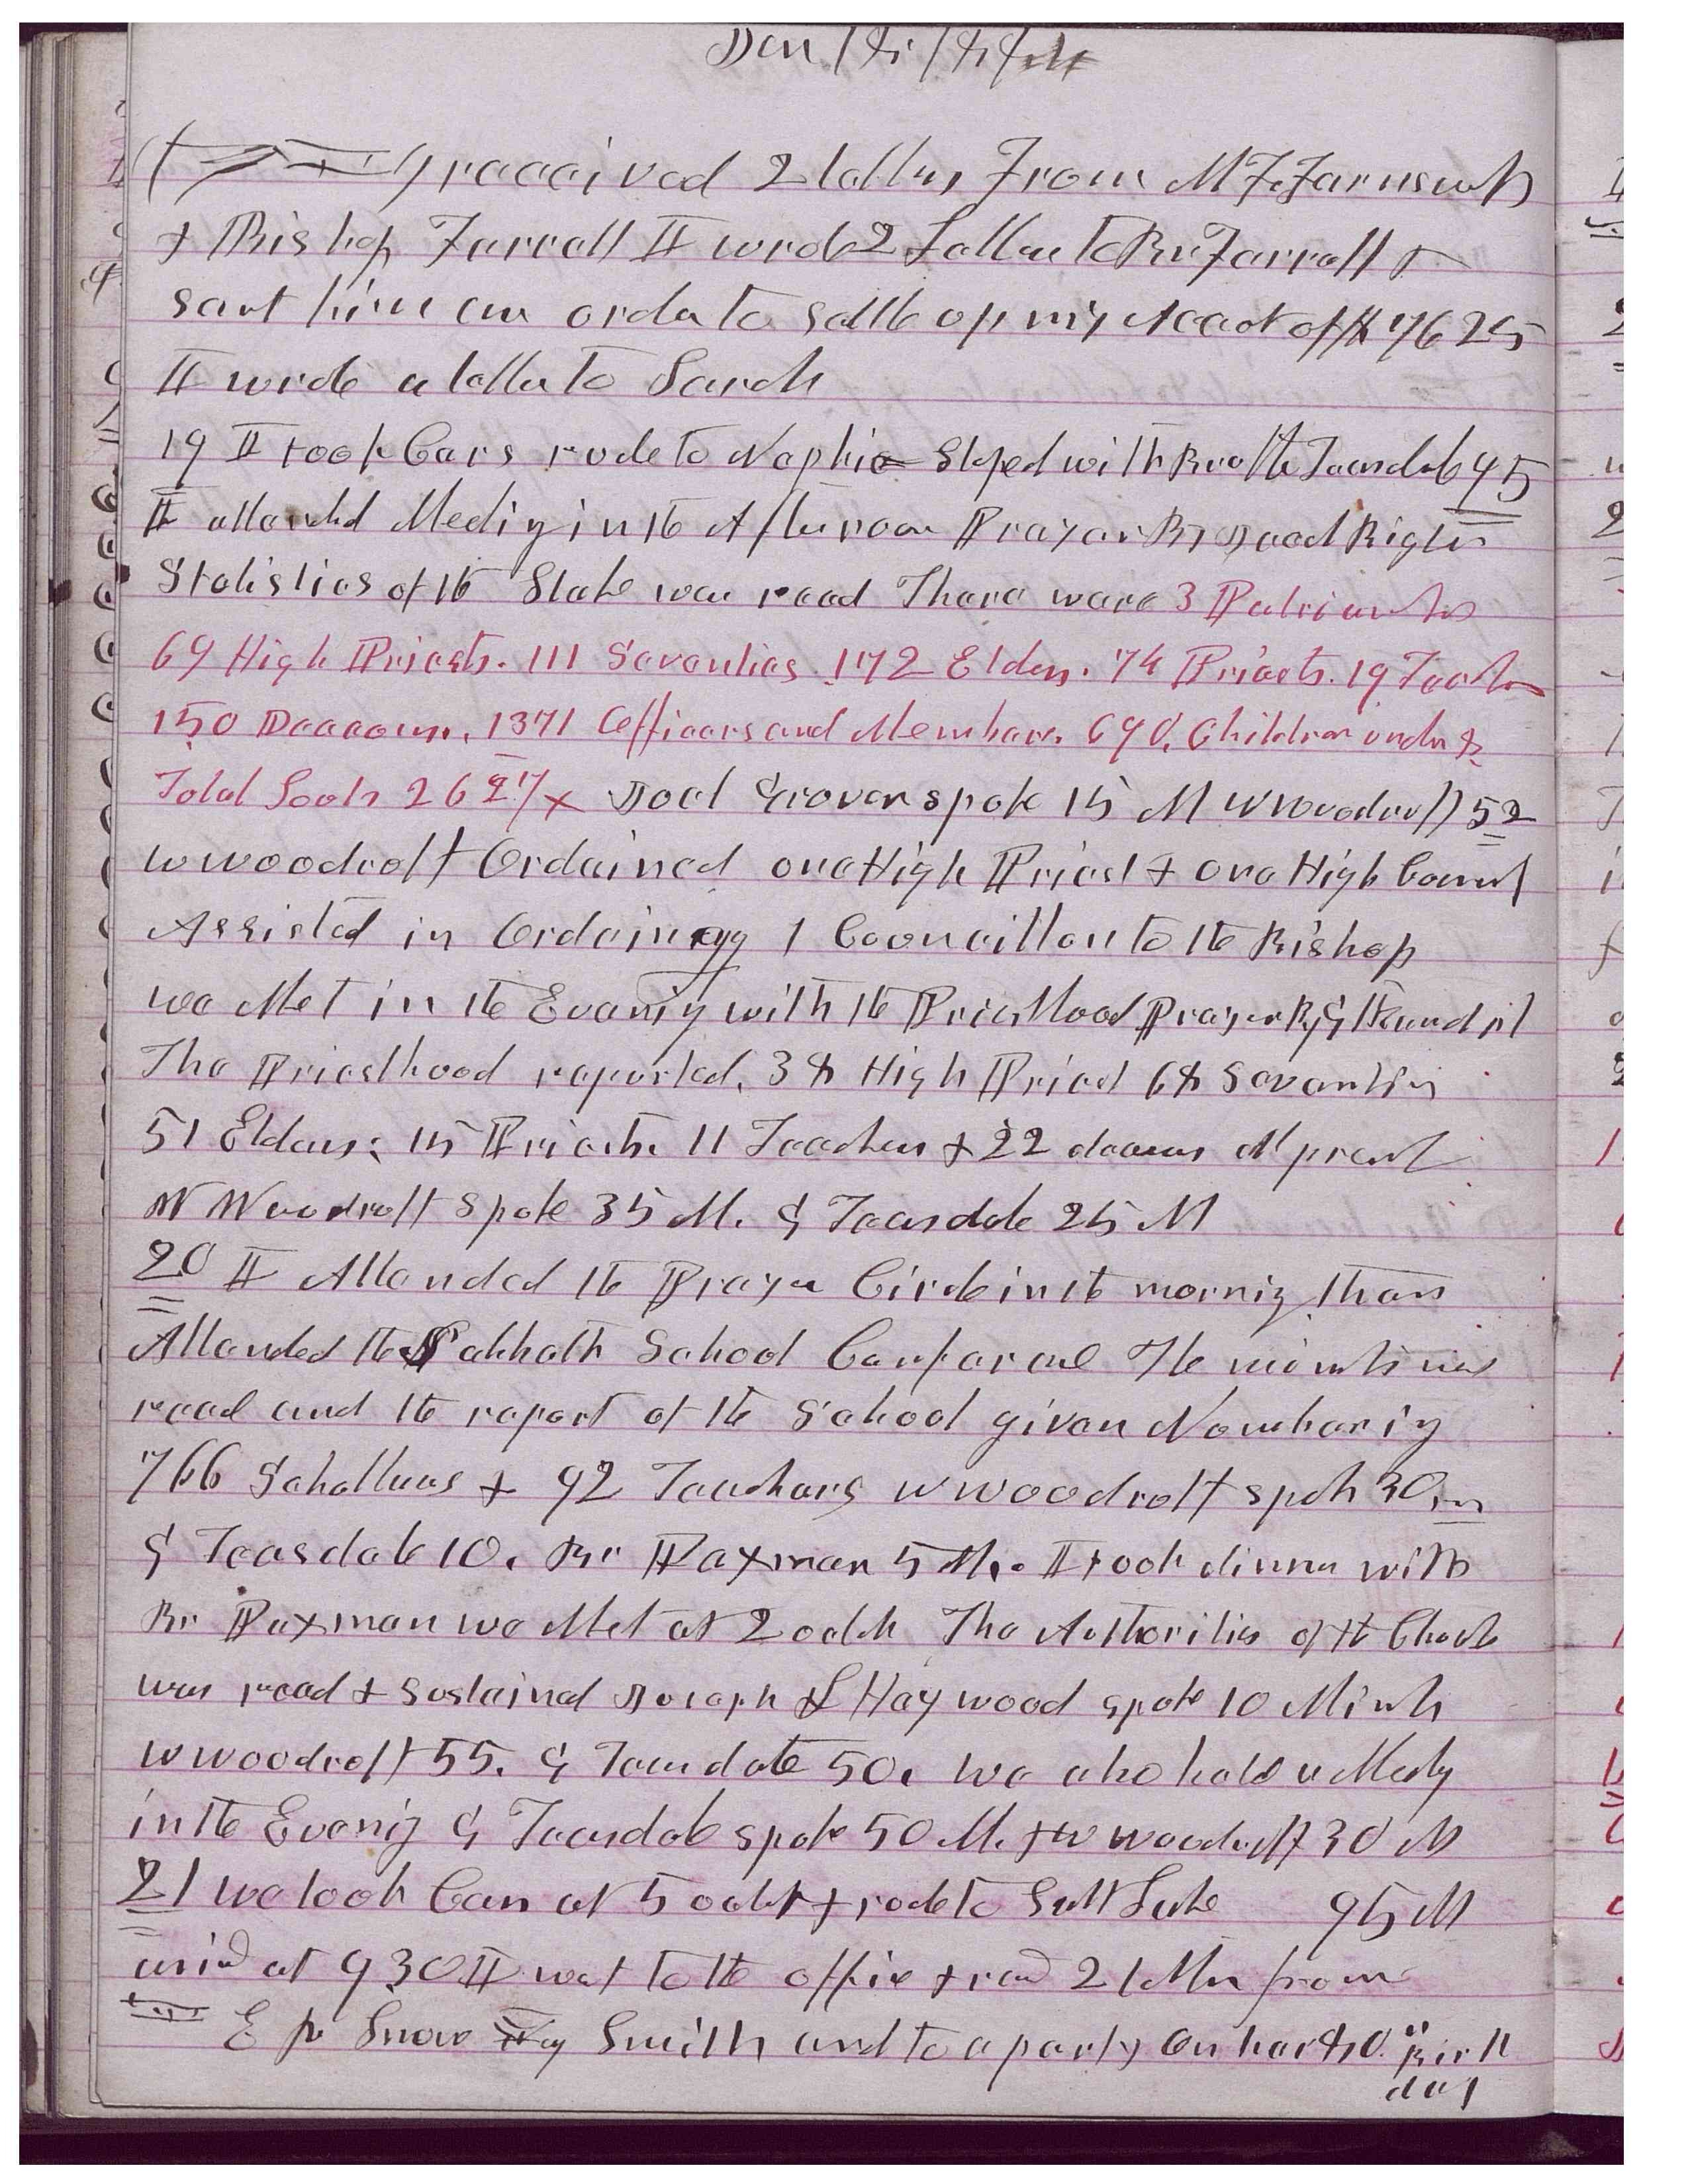 Jan 18 1884
I received 2 letters From M F Farnsworth
& Bishop Farrell I wrote 2 Letters to Br Farrell &
sent him an order to settle up my Accot of $76 25
I wrote a letter to Sarah
19 I took Cars rode to Nephi Stoped with Brother Teasdale 95
I attended Meeting in the Afternoon Prayer By Joel Bigler
Statistics of the Stake was read There were 3 Patriarchs
69 High Priests. 111 Seventies. 172 Elders. 74 Priests. 19 Teachers
150 Deacons. 1371 Officers and Members. 690. Children under 8.
Total Souls 2627 Joel Grover spoke 15 M W Woodruff 52
W Woodruff Ordained one High Priest & one High Council
Assisted in Ordaining 1 Councillor to the Bishop
we Met in the Evening with the Priesthood Prayer By G Kendall
The Priesthood reported. 38 High Priest 68 Seventies
51 Elders: 15 Priests. 11 Teachers & 22 deacons At present
W Woodruff Spoke 35 M. G Teasdale 25 M
20 I Attended the Prayer Circle in the morning then
Attended the Sabbath School Conference The minutes was
read and the report of the School given Numbering
766 Schollars & 92 Teachers W Woodruff spoke 30 m
G Teasdale 10. Br Paxman 5 M. I took dinner with
Br Paxman we Met at 2 oclok The Authorities of the Church
was read & sustained Joseph L Haywood spoke 10 Minutes
W Woodruff 55. G Teasdale 50. we also held a Meeting
in the Evening G Teasdale spoke 50 M. & W Woodruff 30 M
21 we took Cars at 5 oclok & rode to Salt Lake 95 M
arivd at 9 30 I went to the office & recd 2 letters from
E R Snow Smith and to a party on her 80th Birth
day